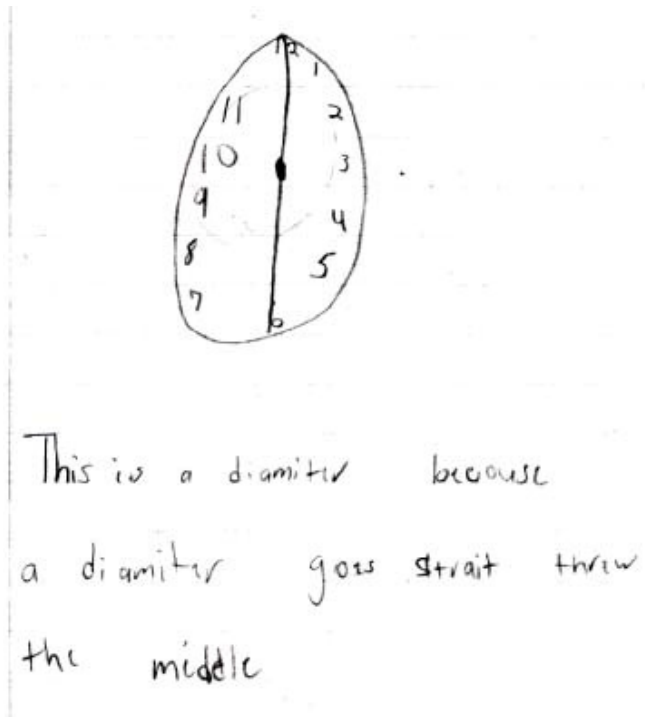 12
1
11
2
10
3
9
4
8
5
7
6
This is a diamiter because
a diamiter goes strait threw
the middle